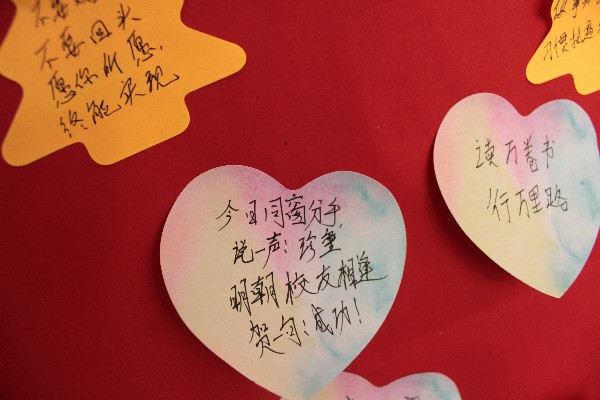 不要回头
愿你所愿,
终能实现
今日同窗分手
说一声:珍重,
明朝校友相逢
贺一句:成功!
读万卷书
行万里路